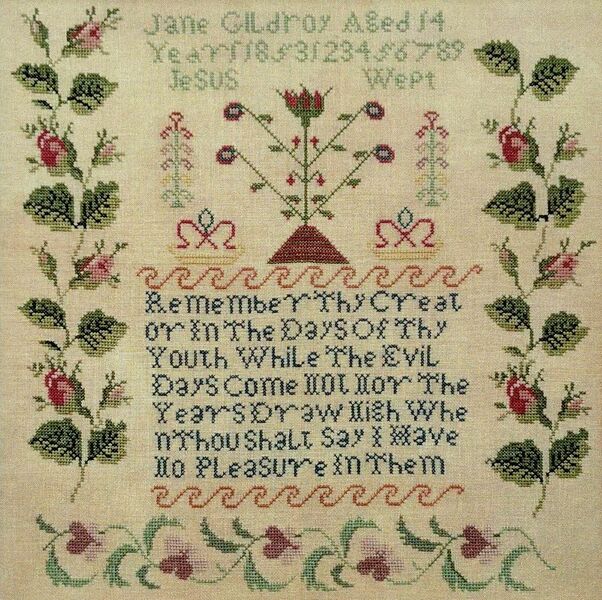 Jane Gildroy Aged 14
Years 1853 123456789
Jesus Wept
Remember Thy Creat
or In The Days Of Thy
Youth While The Evil
Days Come Not Nor The
Years Draw Nigh Whe
n Thou Shalt Say I Have
No Pleasure In Them